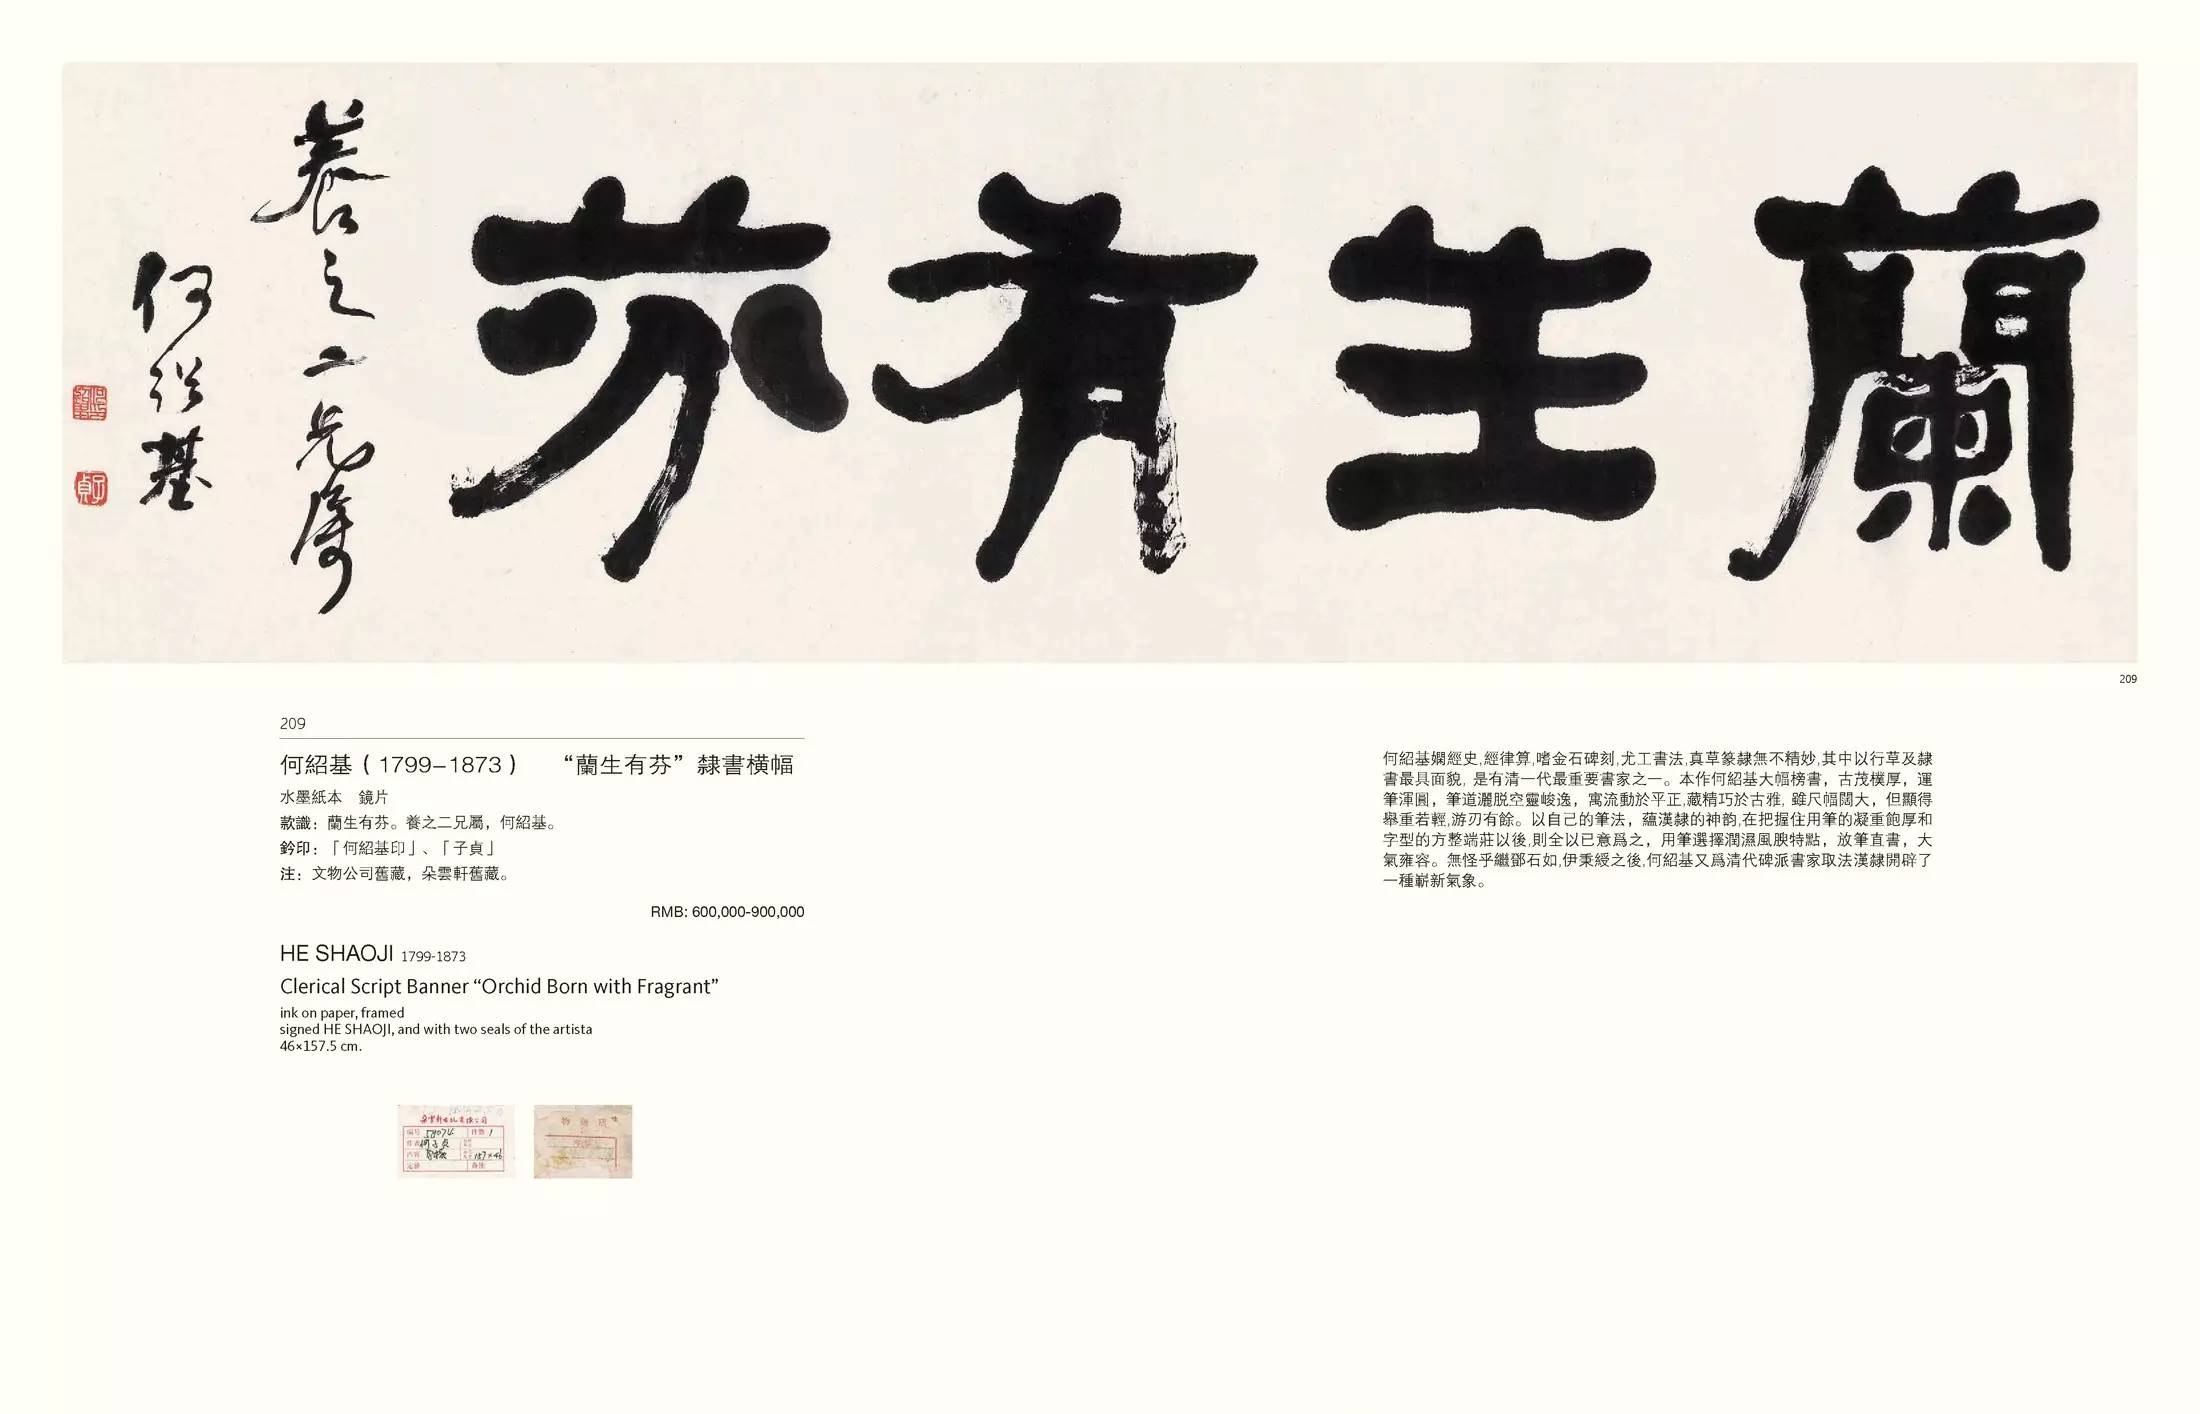 蘭生有芬
養之二兄屬
何紹基
何紹基印
子貞
209
209
何紹基（1799–1873） “蘭生有芬”隸書横幅
水墨紙本 鏡片
款識：蘭生有芬。養之二兄屬，何紹基。
鈐印：「何紹基印」、「子貞」
注：文物公司舊藏，朵雲軒舊藏。
RMB: 600,000-900,000
HE SHAOJI 1799-1873
Clerical Script Banner “Orchid Born with Fragrant”
ink on paper, framed
signed HE SHAOJI, and with two seals of the artista
46×157.5 cm.
编号 58074 件数 1
作者 何子貞
内容 157×46
定价 备注
何紹基嫻經史,經律算,嗜金石碑刻,尤工書法,真草篆隸無不精妙,其中以行草及隸
書最具面貌，是有清一代最重要書家之一。本作何紹基大幅榜書，古茂樸厚，運
筆渾圓，筆道灑脱空靈峻逸，寓流動於平正,藏精巧於古雅，雖尺幅闊大，但顯得
舉重若輕,游刃有餘。以自己的筆法，蘊漢隸的神韵,在把握住用筆的凝重飽厚和
字型的方整端莊以後,則全以已意爲之，用筆選擇潤濕風腴特點，放筆直書，大
氣雍容。無怪乎繼鄧石如,伊秉綬之後,何紹基又爲清代碑派書家取法漢隸開辟了
一種嶄新氣象。